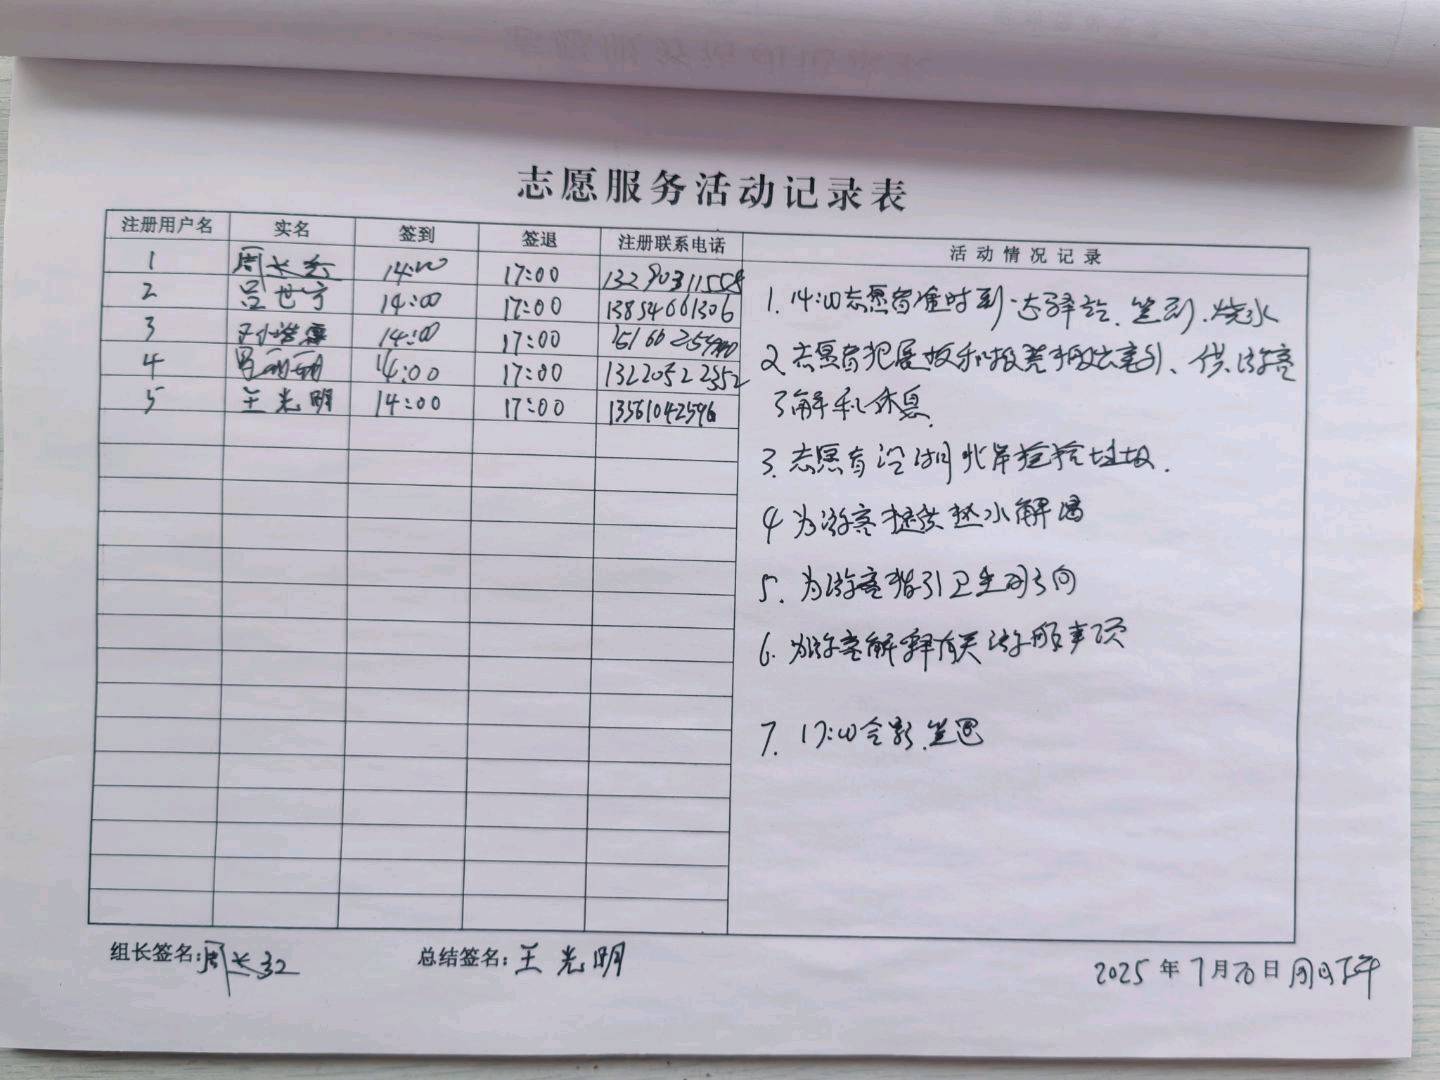 志愿服务活动记录表
注册用户名 实名 签到 签退 注册联系电话 活动情况记录
1 周长 14:00 17:00
2 吕世宁 14:00 17:00 13854661306
3 14:00 17:00
4 14:00 17:00 13220522352
5 王光明 14:00 17:00 13561042596
1. 14:00志愿者准时到达驿站、签到、烧水
2. 志愿者把展板和报架搬出来、供游客
了解和休息
3. 志愿者沿湖北岸捡拾垃圾.
4 为游客提供热水解渴
5. 为游客指引卫生间方向
6. 为游客解释有关游服事项
7. 17:00合影.签退
组长签名:周长 总结签名:王光明
2025年7月20日周日下午